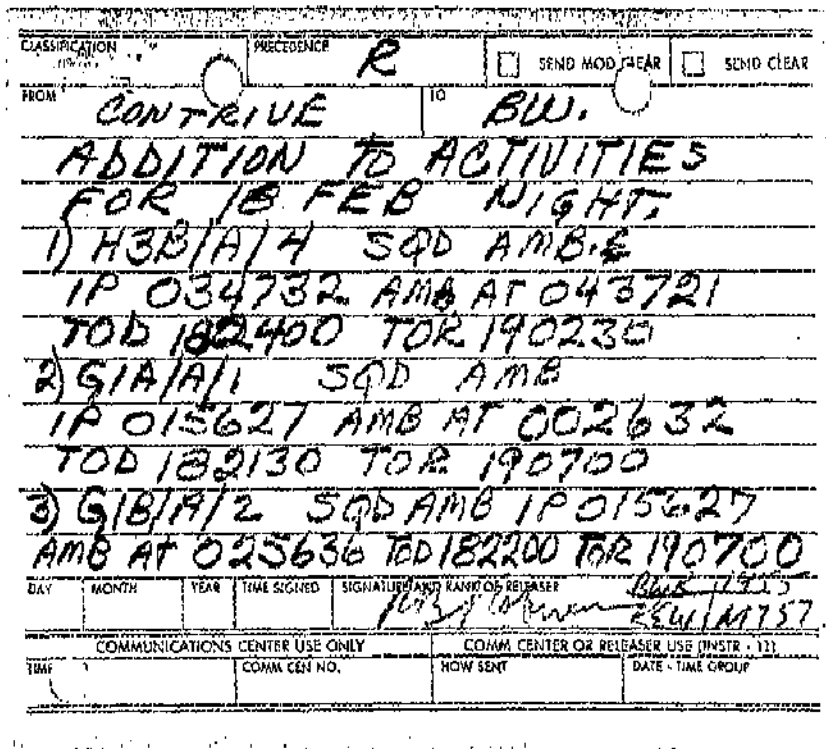 CLASSIFICATION PRECEDENCE R SEND MOD CLEAR SEND CLEAR
FROM CONTRIVE TO BW.
ADDITION TO ACTIVITIES
FOR 18 FEB NIGHT.
1) H3B/A/4 SQD AMB.
IP 034732 AMB AT 043721
TOD 182400 TOR 190230
2) G1A/A/1 SQD AMB
IP 015627 AMB AT 002632
TOD 182130 TOR 190700
3) G1B/A/2 SQD AMB IP 015627
AMB AT 025636 TOD 182200 TOR 190700
DAY MONTH YEAR TIME SIGNED SIGNATURE AND RANK OF RELEASER
COMMUNICATIONS CENTER USE ONLY COMM CENTER OR RELEASER USE (INSTR - 11)
TIME COMM CEN NO. HOW SENT DATE - TIME GROUP